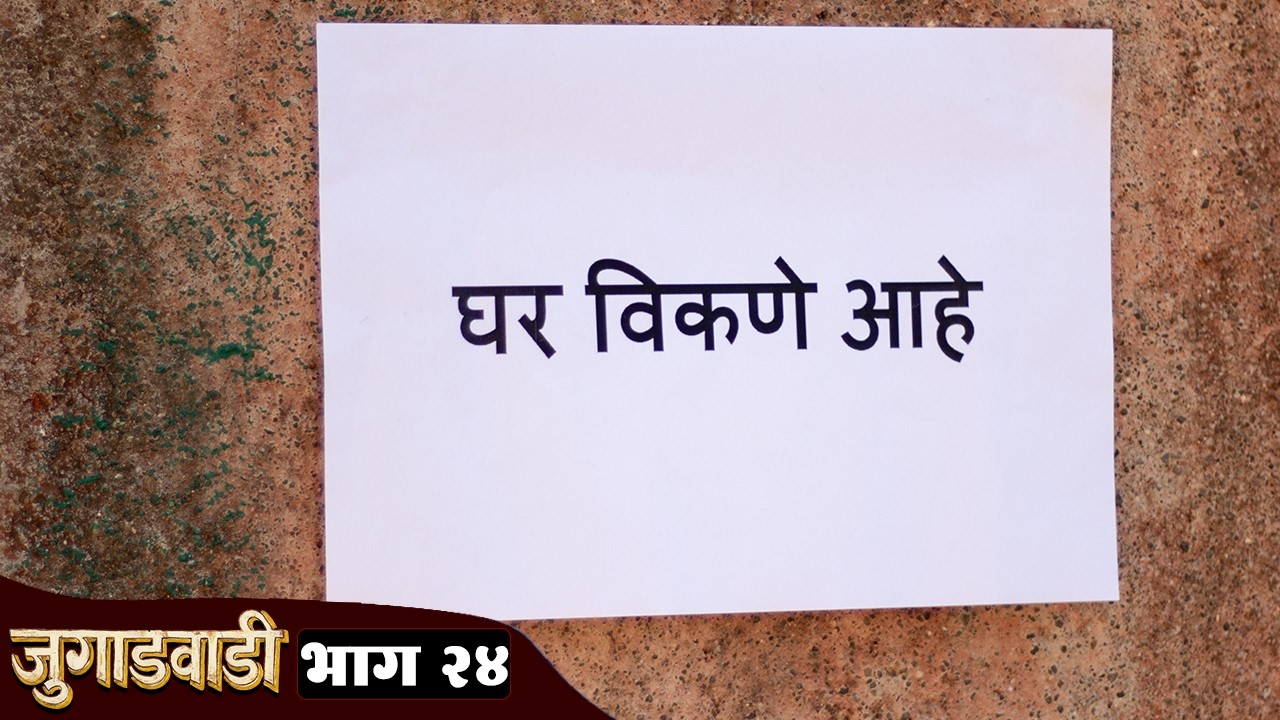 घर विकणे आहे
जुगाडवाडी
भाग २४